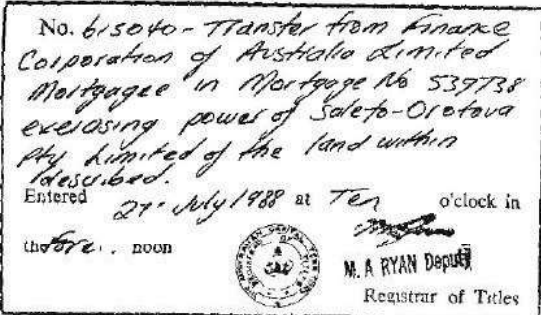 No. 615040 - Transfer from Finance
Corporation of Australia Limited
Mortgagee in Mortgage No 539738
exercising power of Sale to - Orotova
Pty Limited of the land within
described.
Entered 27 July 1988 at Ten o'clock in
the fore. noon
M. A RYAN Deputy
Registrar of Titles